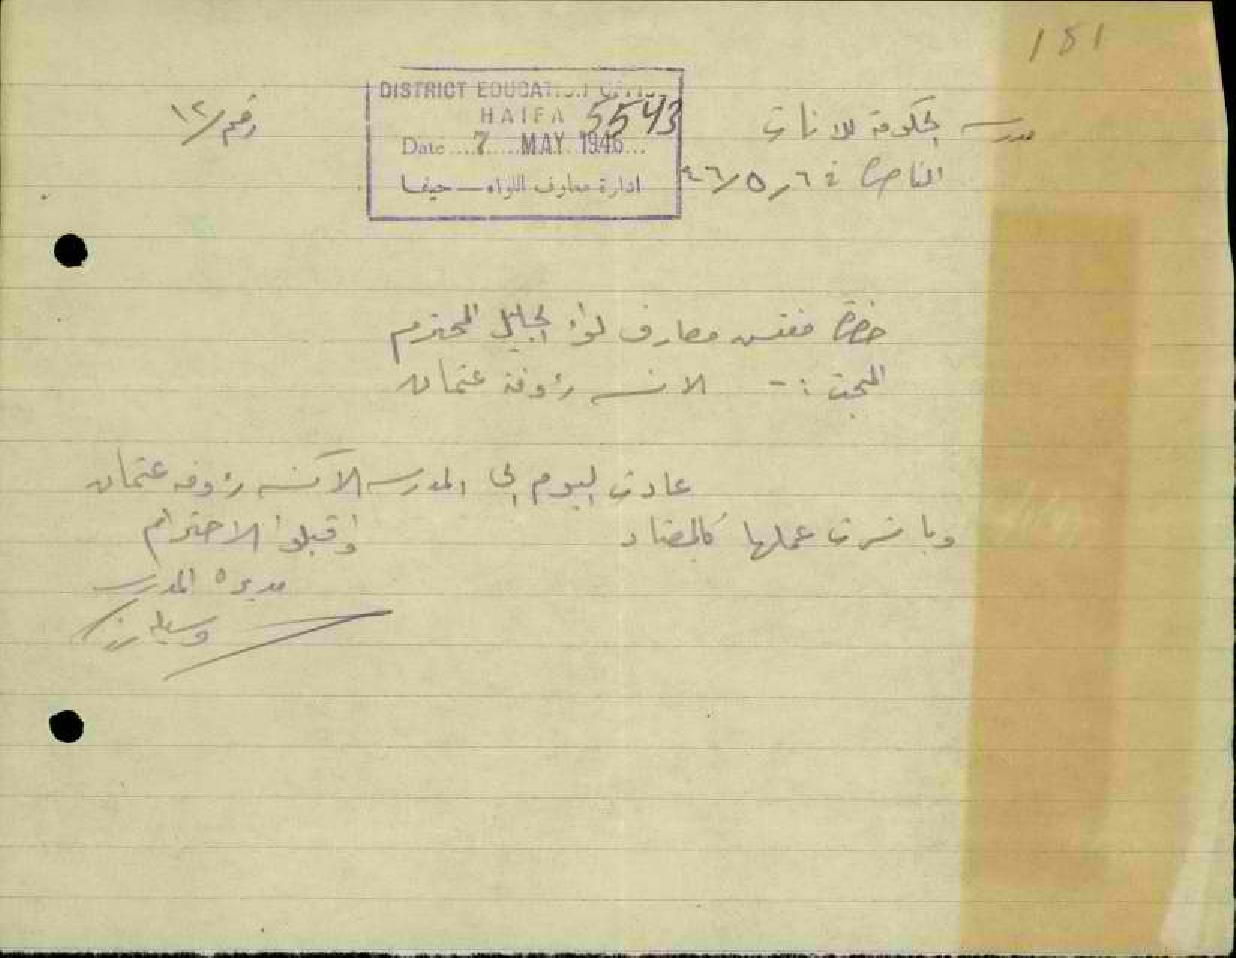 181
مدرسة الحكومة للاناث
رقم/١٢
الناصرة في ٦/٥/٤٦
DISTRICT EDUCATION OFFICE
HAIFA 5543
Date 7 MAY 1946
ادارة معارف اللواء — حيفا
حضرة مفتش معارف لواء الجليل المحترم
المبحث :- الانسه رؤوفة عثمان
عادت اليوم الى المدرسه الآنسه رؤوفه عثمان
وباشرت عملها كالمعتاد واقبلوا الاحترام
مديرة المدرسه